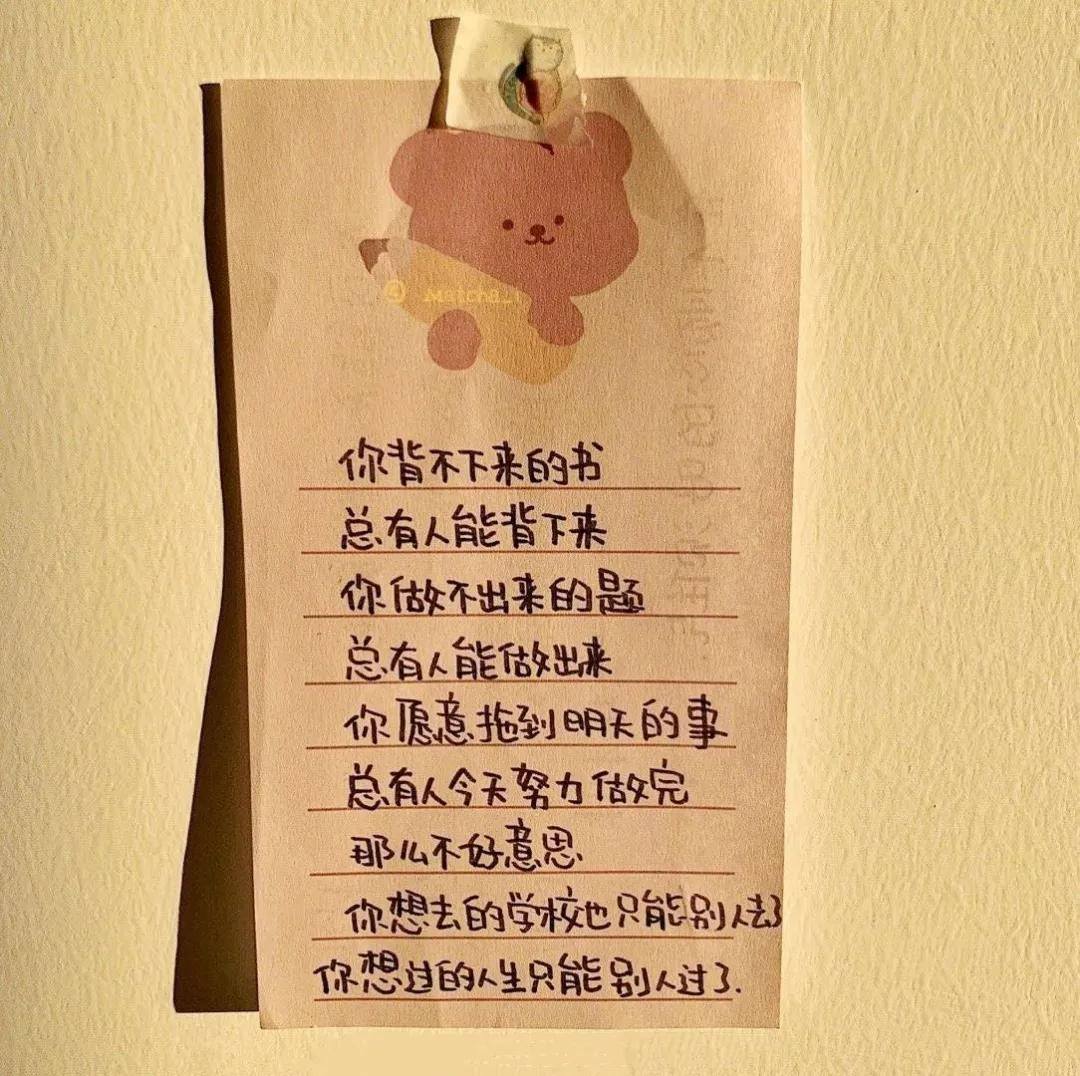 Matcha
你背不下来的书
总有人能背下来
你做不出来的题
总有人能做出来
你愿意拖到明天的事
总有人今天努力做完
那么不好意思
你想去的学校也只能别人去了
你想过的人生只能别人过了.